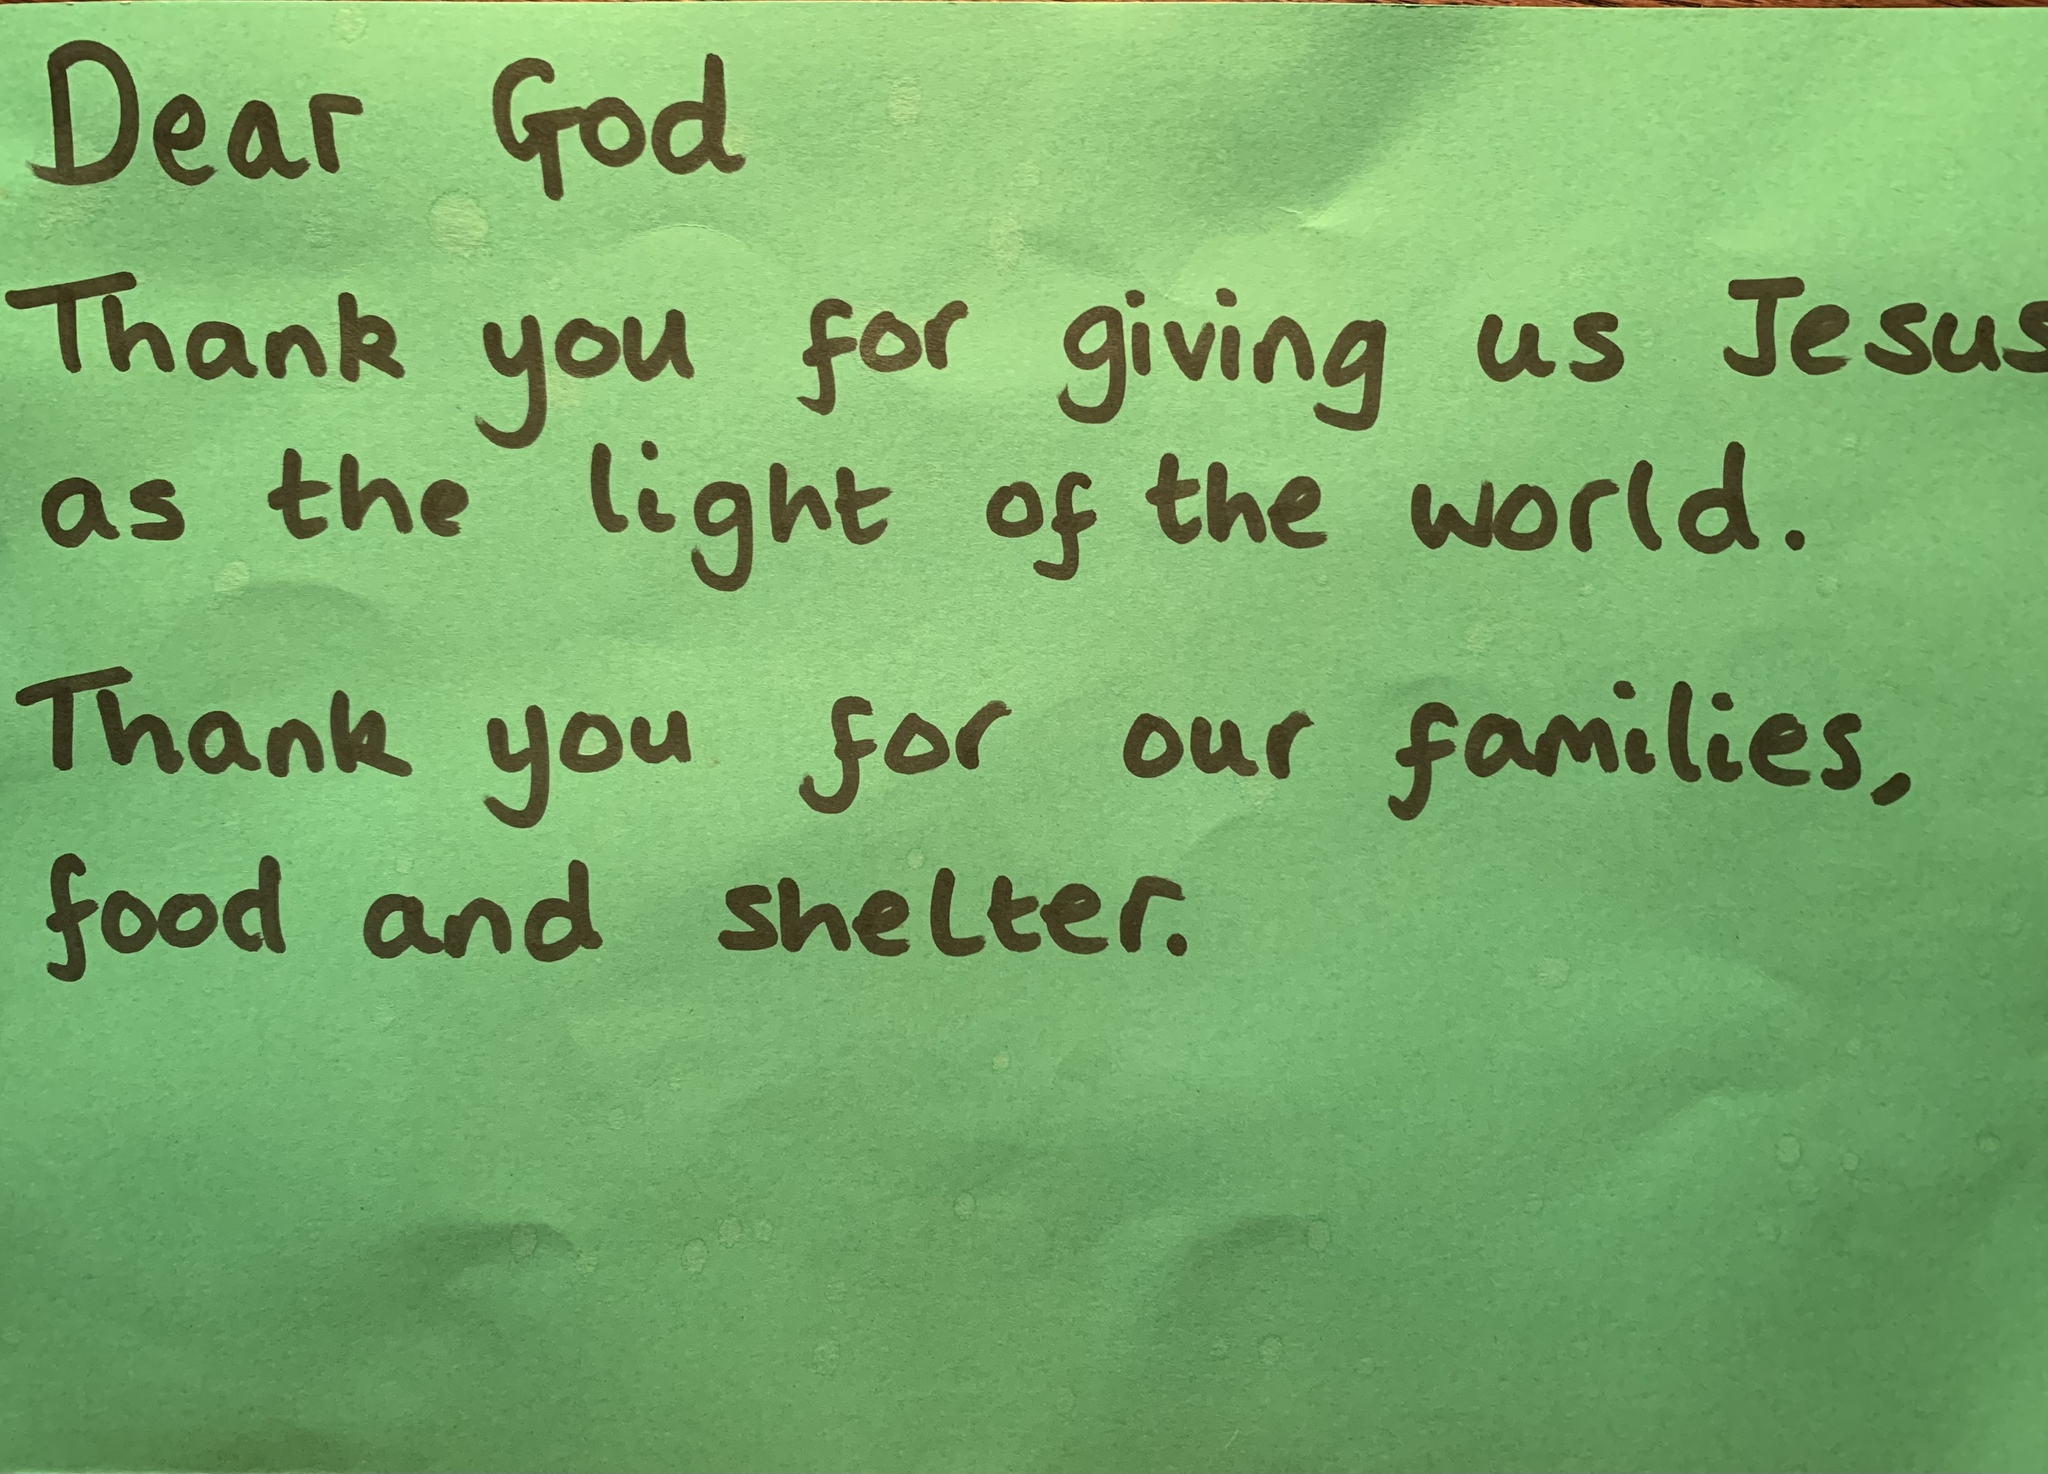 Dear God
Thank you for giving us Jesus
as the light of the world.
Thank you for our families,
food and shelter.